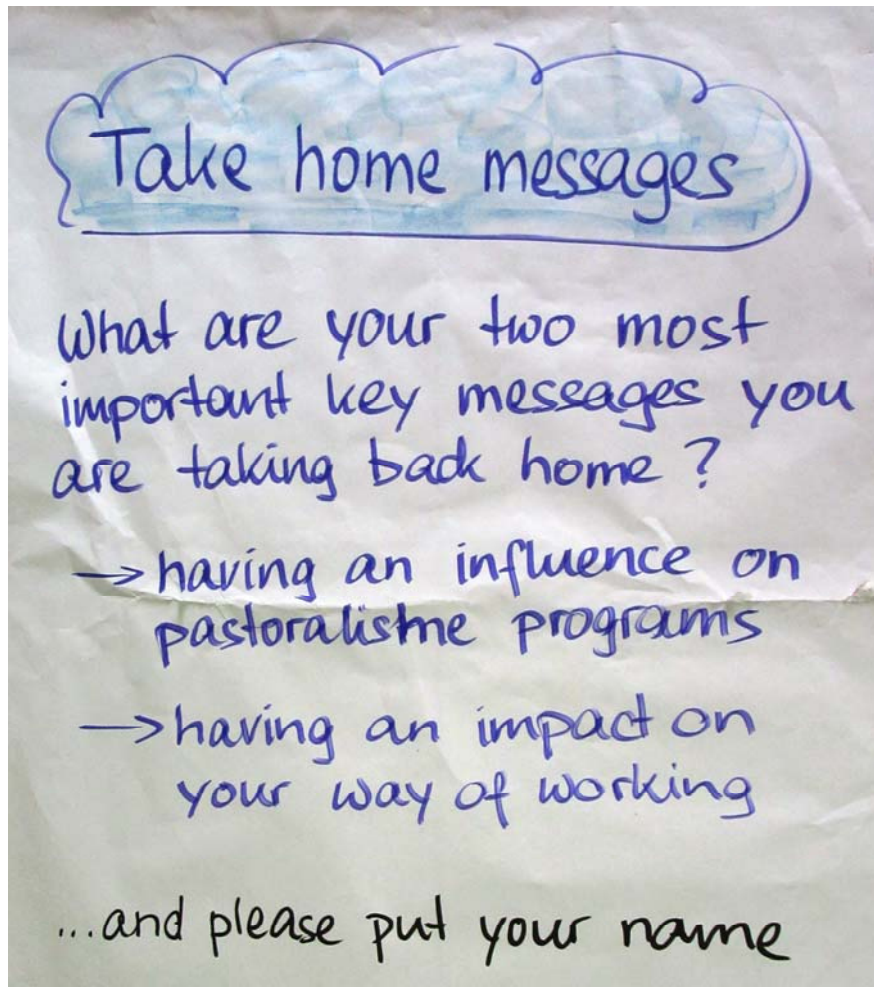 Take home messages
What are your two most
important key messages you
are taking back home ?
→ having an influence on
pastoralisme programs
→ having an impact on
your way of working
...and please put your name